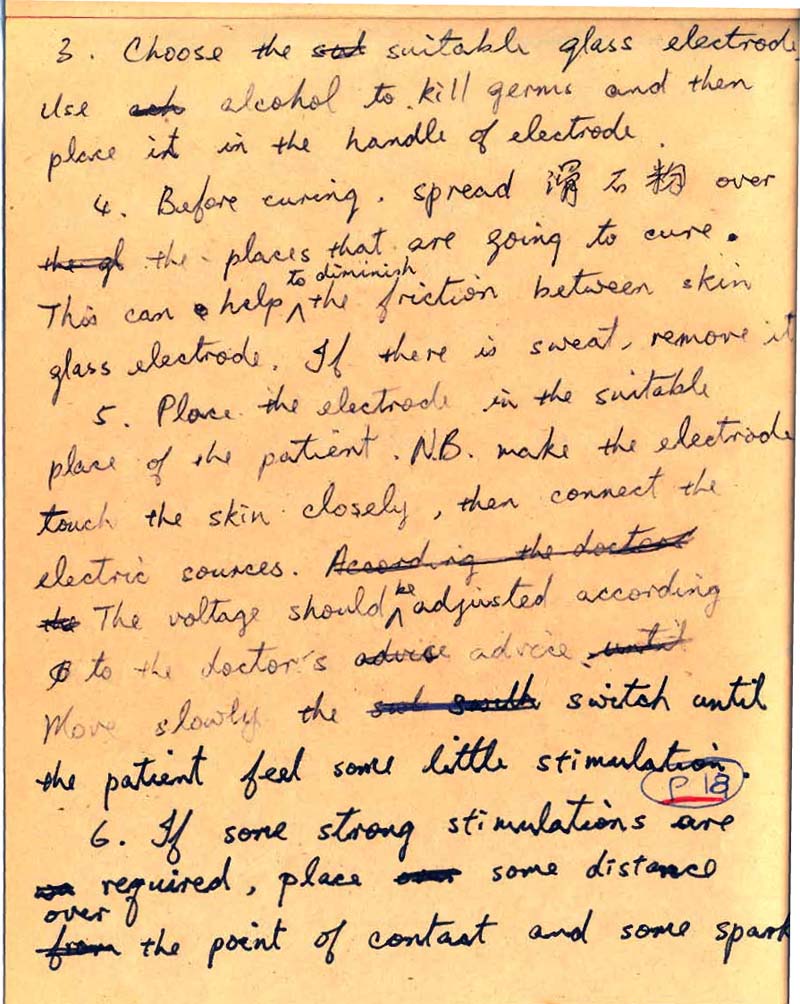 3. Choose the suitable glass electrode
Use alcohol to kill germs and then
place it in the handle of electrode.
4. Before curing. spread 滑石粉 over
the places that are going to cure.
This can help to diminish the friction between skin
glass electrode. If there is sweat, remove it
5. Place the electrode in the suitable
place of the patient. N.B. make the electrode
touch the skin closely, then connect the
electric sources. According the doctors
The voltage should be adjusted according
to the doctor's advice advice until
Move slowly the switch until
the patient feel some little stimulation.
P 18
6. If some strong stimulations are
required, place over some distance
over from the point of contact and some spark